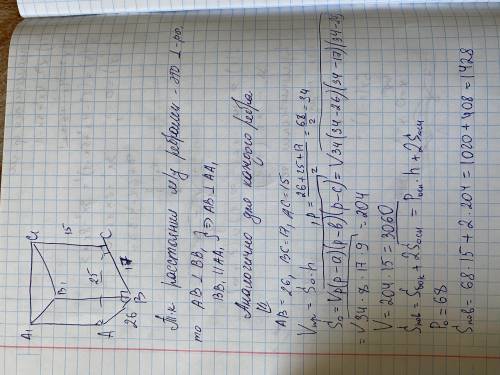 A₁
C₁
15
B₁
A
25
C
26
B
17
Т.к. расстояния м/у ребрами - это ⊥-ры,
то AB ⊥ BB₁ } ⇒ AB ⊥ AA₁
BB₁ ∥ AA₁
Аналогично для каждого ребра
AB = 26, BC = 17, AC = 15
Vпр = S₀ · h
p = 26+25+17 / 2 = 68 / 2 = 34
S₀ = √p(p-a)(p-b)(p-c) = √34(34-26)(34-17)(34-25)
= √34 · 8 · 17 · 9 = 204
V = 204 · 15 = 3060
Sпов = Sбок + 2Sосн = Pосн · h + 2Sосн
P₀ = 68
Sпов = 68 · 15 + 2 · 204 = 1020 + 408 = 1428